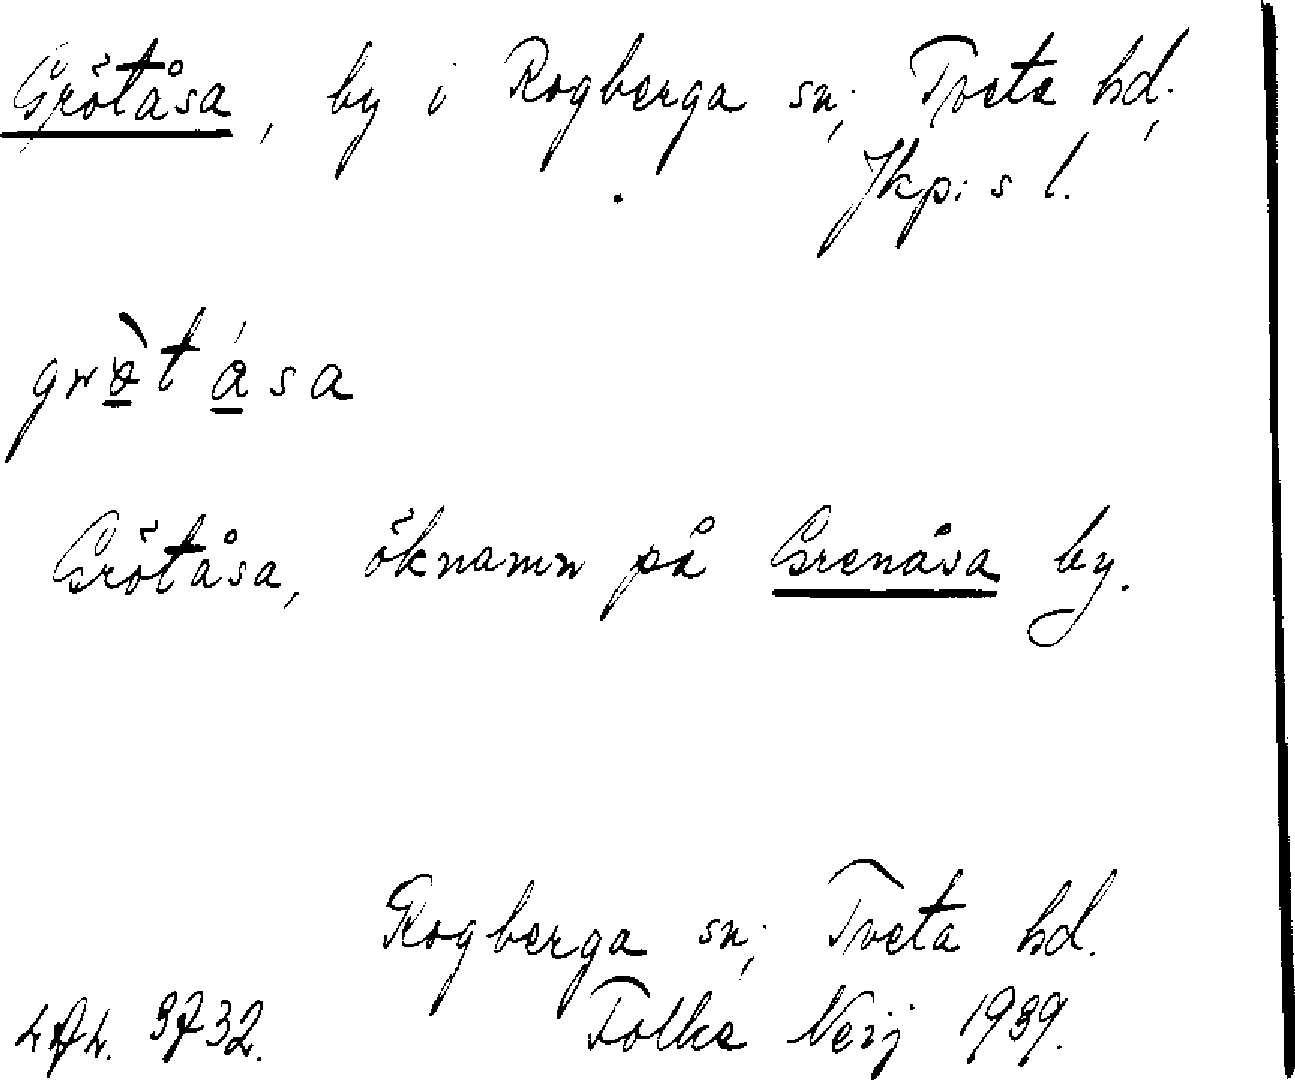 Grötåsa, by i Rogberga sn; Tveta hd;
Jkp:s l.
grø̀tása
Grötåsa, öknamn på Grenåsa by.
Rogberga sn; Tveta hd.
3732. Folke Neij 1939.